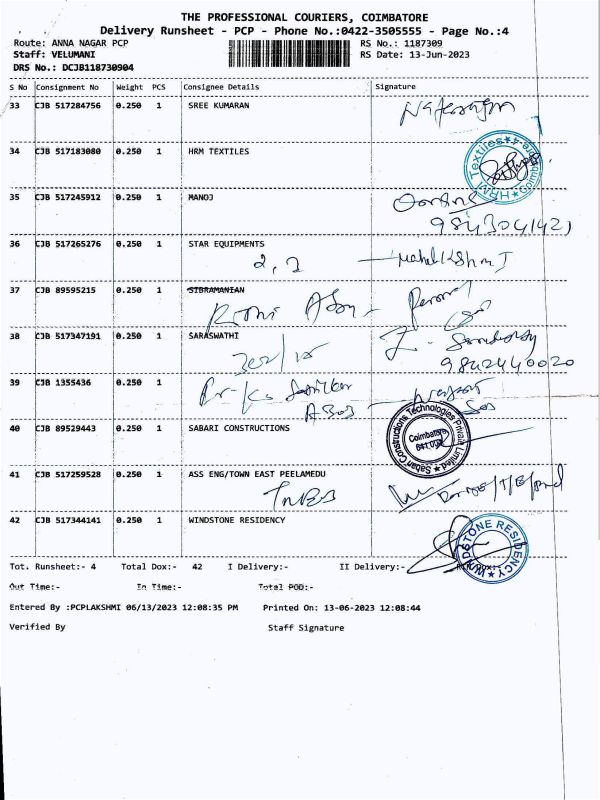 THE PROFESSIONAL COURIERS, COIMBATORE
Delivery Runsheet - PCP - Phone No.:0422-3505555 - Page No.:4
Route: ANNA NAGAR PCP RS No.: 1187309
Staff: VELUMANI RS Date: 13-Jun-2023
DRS No.: DCJB118730904
S No Consignment No Weight PCS Consignee Details Signature
33 CJB 517284756 0.250 1 SREE KUMARAN
34 CJB 517183080 0.250 1 HRM TEXTILES
HRM Textiles Coimbatore-4
35 CJB 517245912 0.250 1 MANOJ
9843041421
36 CJB 517265276 0.250 1 STAR EQUIPMENTS
37 CJB 89595215 0.250 1 SIBRAMANIAN
38 CJB 517347191 0.250 1 SARASWATHI
302/15
9842440020
39 CJB 1355436 0.250 1
40 CJB 89529443 0.250 1 SABARI CONSTRUCTIONS
Sabari Constructions Technologies Private Limited
Coimbatore
41 CJB 517259528 0.250 1 ASS ENG/TOWN EAST PEELAMEDU
TNEB
42 CJB 517344141 0.250 1 WINDSTONE RESIDENCY
WINDSTONE RESIDENCY
Tot. Runsheet:- 4 Total Dox:- 42 I Delivery:- II Delivery:-
Out Time:- In Time:- Total POD:-
Entered By :PCPLAKSHMI 06/13/2023 12:08:35 PM Printed On: 13-06-2023 12:08:44
Verified By Staff Signature